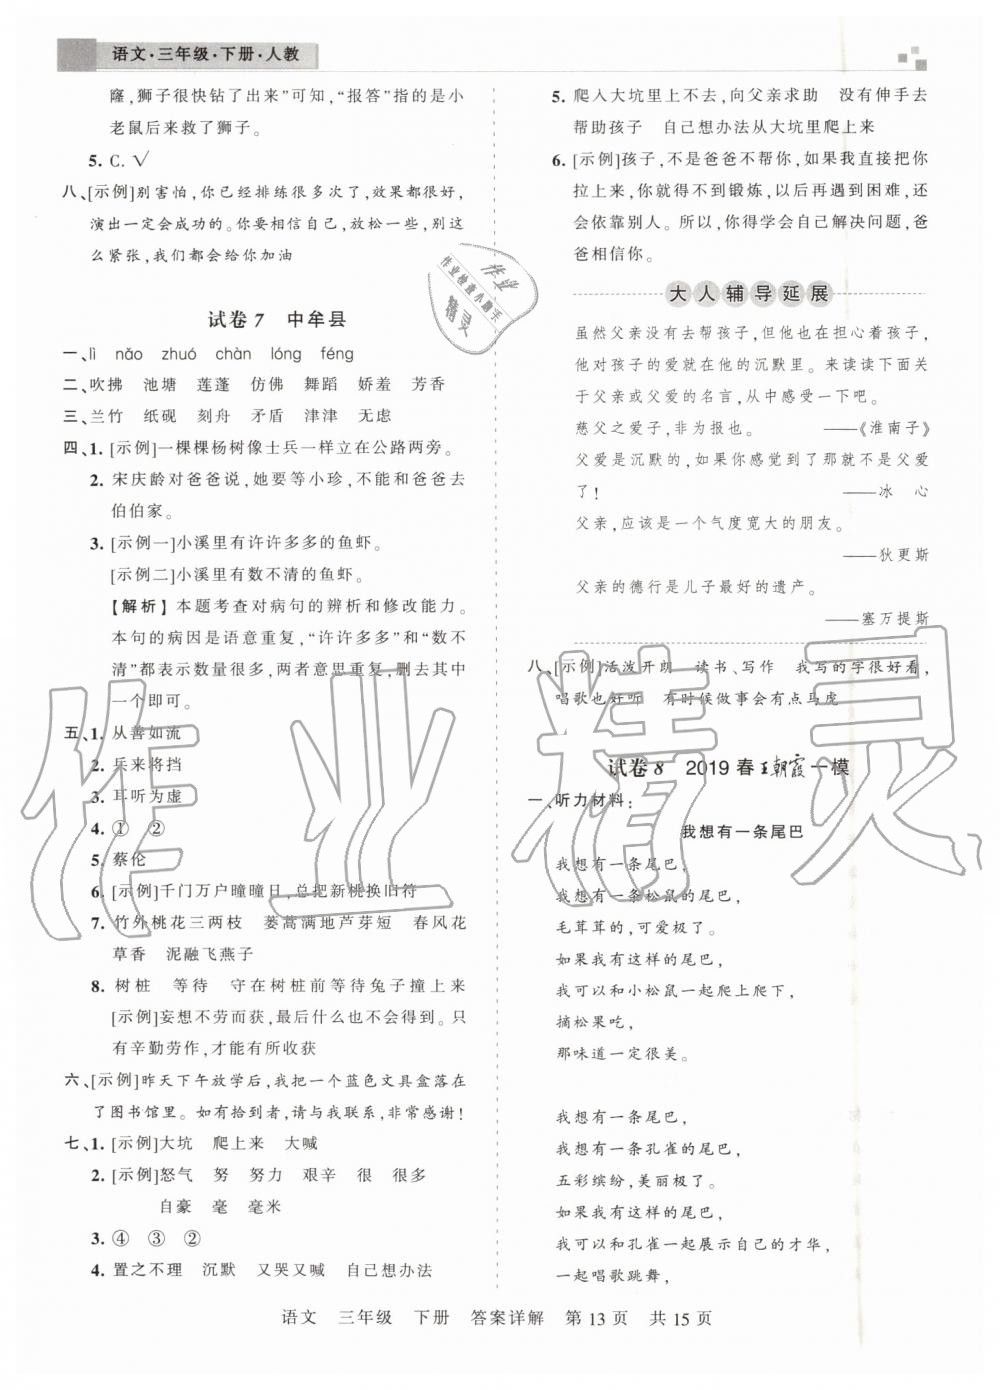 语文·三年级·下册·人教
窿,狮子很快钻了出来”可知,“报答”指的是小
老鼠后来救了狮子。
5. C. √
八、[示例]别害怕,你已经排练很多次了,效果都很好,
演出一定会成功的。你要相信自己,放松一些,别这
么紧张,我们都会给你加油
试卷7 中牟县
一、lì nǎo zhuó chàn lóng féng
二、吹拂 池塘 莲蓬 仿佛 舞蹈 娇羞 芳香
三、兰竹 纸砚 刻舟 矛盾 津津 无虑
四、1. [示例]一棵棵杨树像士兵一样立在公路两旁。
2. 宋庆龄对爸爸说,她要等小珍,不能和爸爸去
伯伯家。
3. [示例一]小溪里有许许多多的鱼虾。
[示例二]小溪里有数不清的鱼虾。
【解析】本题考查对病句的辨析和修改能力。
本句的病因是语意重复,“许许多多”和“数不
清”都表示数量很多,两者意思重复,删去其中
一个即可。
五、1. 从善如流
2. 兵来将挡
3. 耳听为虚
4. ① ②
5. 蔡伦
6. [示例]千门万户曈曈日,总把新桃换旧符
7. 竹外桃花三两枝 蒌蒿满地芦芽短 春风花
草香 泥融飞燕子
8. 树桩 等待 守在树桩前等待兔子撞上来
[示例]妄想不劳而获,最后什么也不会得到。只
有辛勤劳作,才能有所收获
六、[示例]昨天下午放学后,我把一个蓝色文具盒落在
了图书馆里。如有拾到者,请与我联系,非常感谢!
七、1. [示例]大坑 爬上来 大喊
2. [示例]怒气 努 努力 艰辛 很 很多
自豪 毫 毫米
3. ④ ③ ②
4. 置之不理 沉默 又哭又喊 自己想办法
5. 爬入大坑里上不去,向父亲求助 没有伸手去
帮助孩子 自己想办法从大坑里爬上来
6. [示例]孩子,不是爸爸不帮你,如果我直接把你
拉上来,你就得不到锻炼,以后再遇到困难,还
会依靠别人。所以,你得学会自己解决问题,爸
爸相信你。
大人辅导延展
虽然父亲没有去帮孩子,但他也在担心着孩子,
他对孩子的爱就在他的沉默里。来读读下面关
于父亲或父爱的名言,从中感悟一下吧。
慈父之爱子,非为报也。 ——《淮南子》
父爱是沉默的,如果你感觉到了那就不是父爱
了! ——冰 心
父亲,应该是一个气度宽大的朋友。
——狄更斯
父亲的德行是儿子最好的遗产。
——塞万提斯
八、[示例]活泼开朗 读书、写作 我写的字很好看,
唱歌也好听 有时候做事会有点马虎
试卷8 2019春王朝霞一模
一、听力材料:
我想有一条尾巴
我想有一条尾巴,
我想有一条松鼠的尾巴,
毛茸茸的,可爱极了。
如果我有这样的尾巴,
我可以和小松鼠一起爬上爬下,
摘松果吃,
那味道一定很美。
我想有一条尾巴,
我想有一条孔雀的尾巴,
五彩缤纷,美丽极了。
如果我有这样的尾巴,
我可以和孔雀一起展示自己的才华,
一起唱歌跳舞,
语文 三年级 下册 答案详解 第13页 共15页
作业检查小助手
作业
精灵
作业精灵